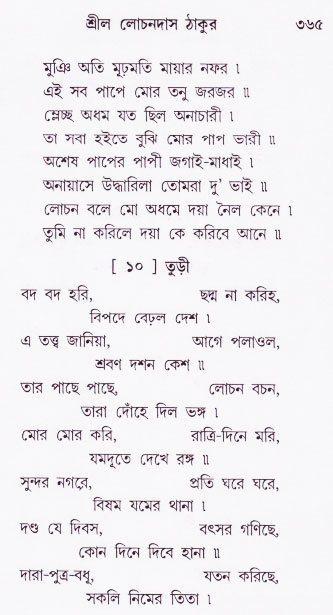 শ্রীল লোচনদাস ঠাকুর ৩৬৫
মুঞি অতি মূঢ়মতি মায়ার নফর ।
এই সব পাপে মোর তনু জরজর ॥
ম্লেচ্ছ অধম যত ছিল অনাচারী ।
তা সবা হইতে বুঝি মোর পাপ ভারী ॥
অশেষ পাপের পাপী জগাই-মাধাই ।
অনায়াসে উদ্ধারিলা তোমরা দু' ভাই ॥
লোচন বলে মো অধমে দয়া নৈল কেনে ।
তুমি না করিলে দয়া কে করিবে আনে ॥
[ ১০ ] তুড়ী
বদ বদ হরি, ছদ্ম না করিহ,
বিপদে বেঢ়ল দেশ ।
এ তত্ত্ব জানিয়া, আগে পলাওল,
শ্রবণ দশন কেশ ॥
তার পাছে পাছে, লোচন বচন,
তারা দোঁহে দিল ভঙ্গ ।
মোর মোর করি, রাত্রি-দিনে মরি,
যমদূতে দেখে রঙ্গ ॥
সুন্দর নগরে, প্রতি ঘরে ঘরে,
বিষম যমের থানা ।
দণ্ড যে দিবস, বৎসর গণিছে,
কোন দিনে দিবে হানা ॥
দারা-পুত্র-বধূ, যতন করিছে,
সকলি নিমের তিতা ।